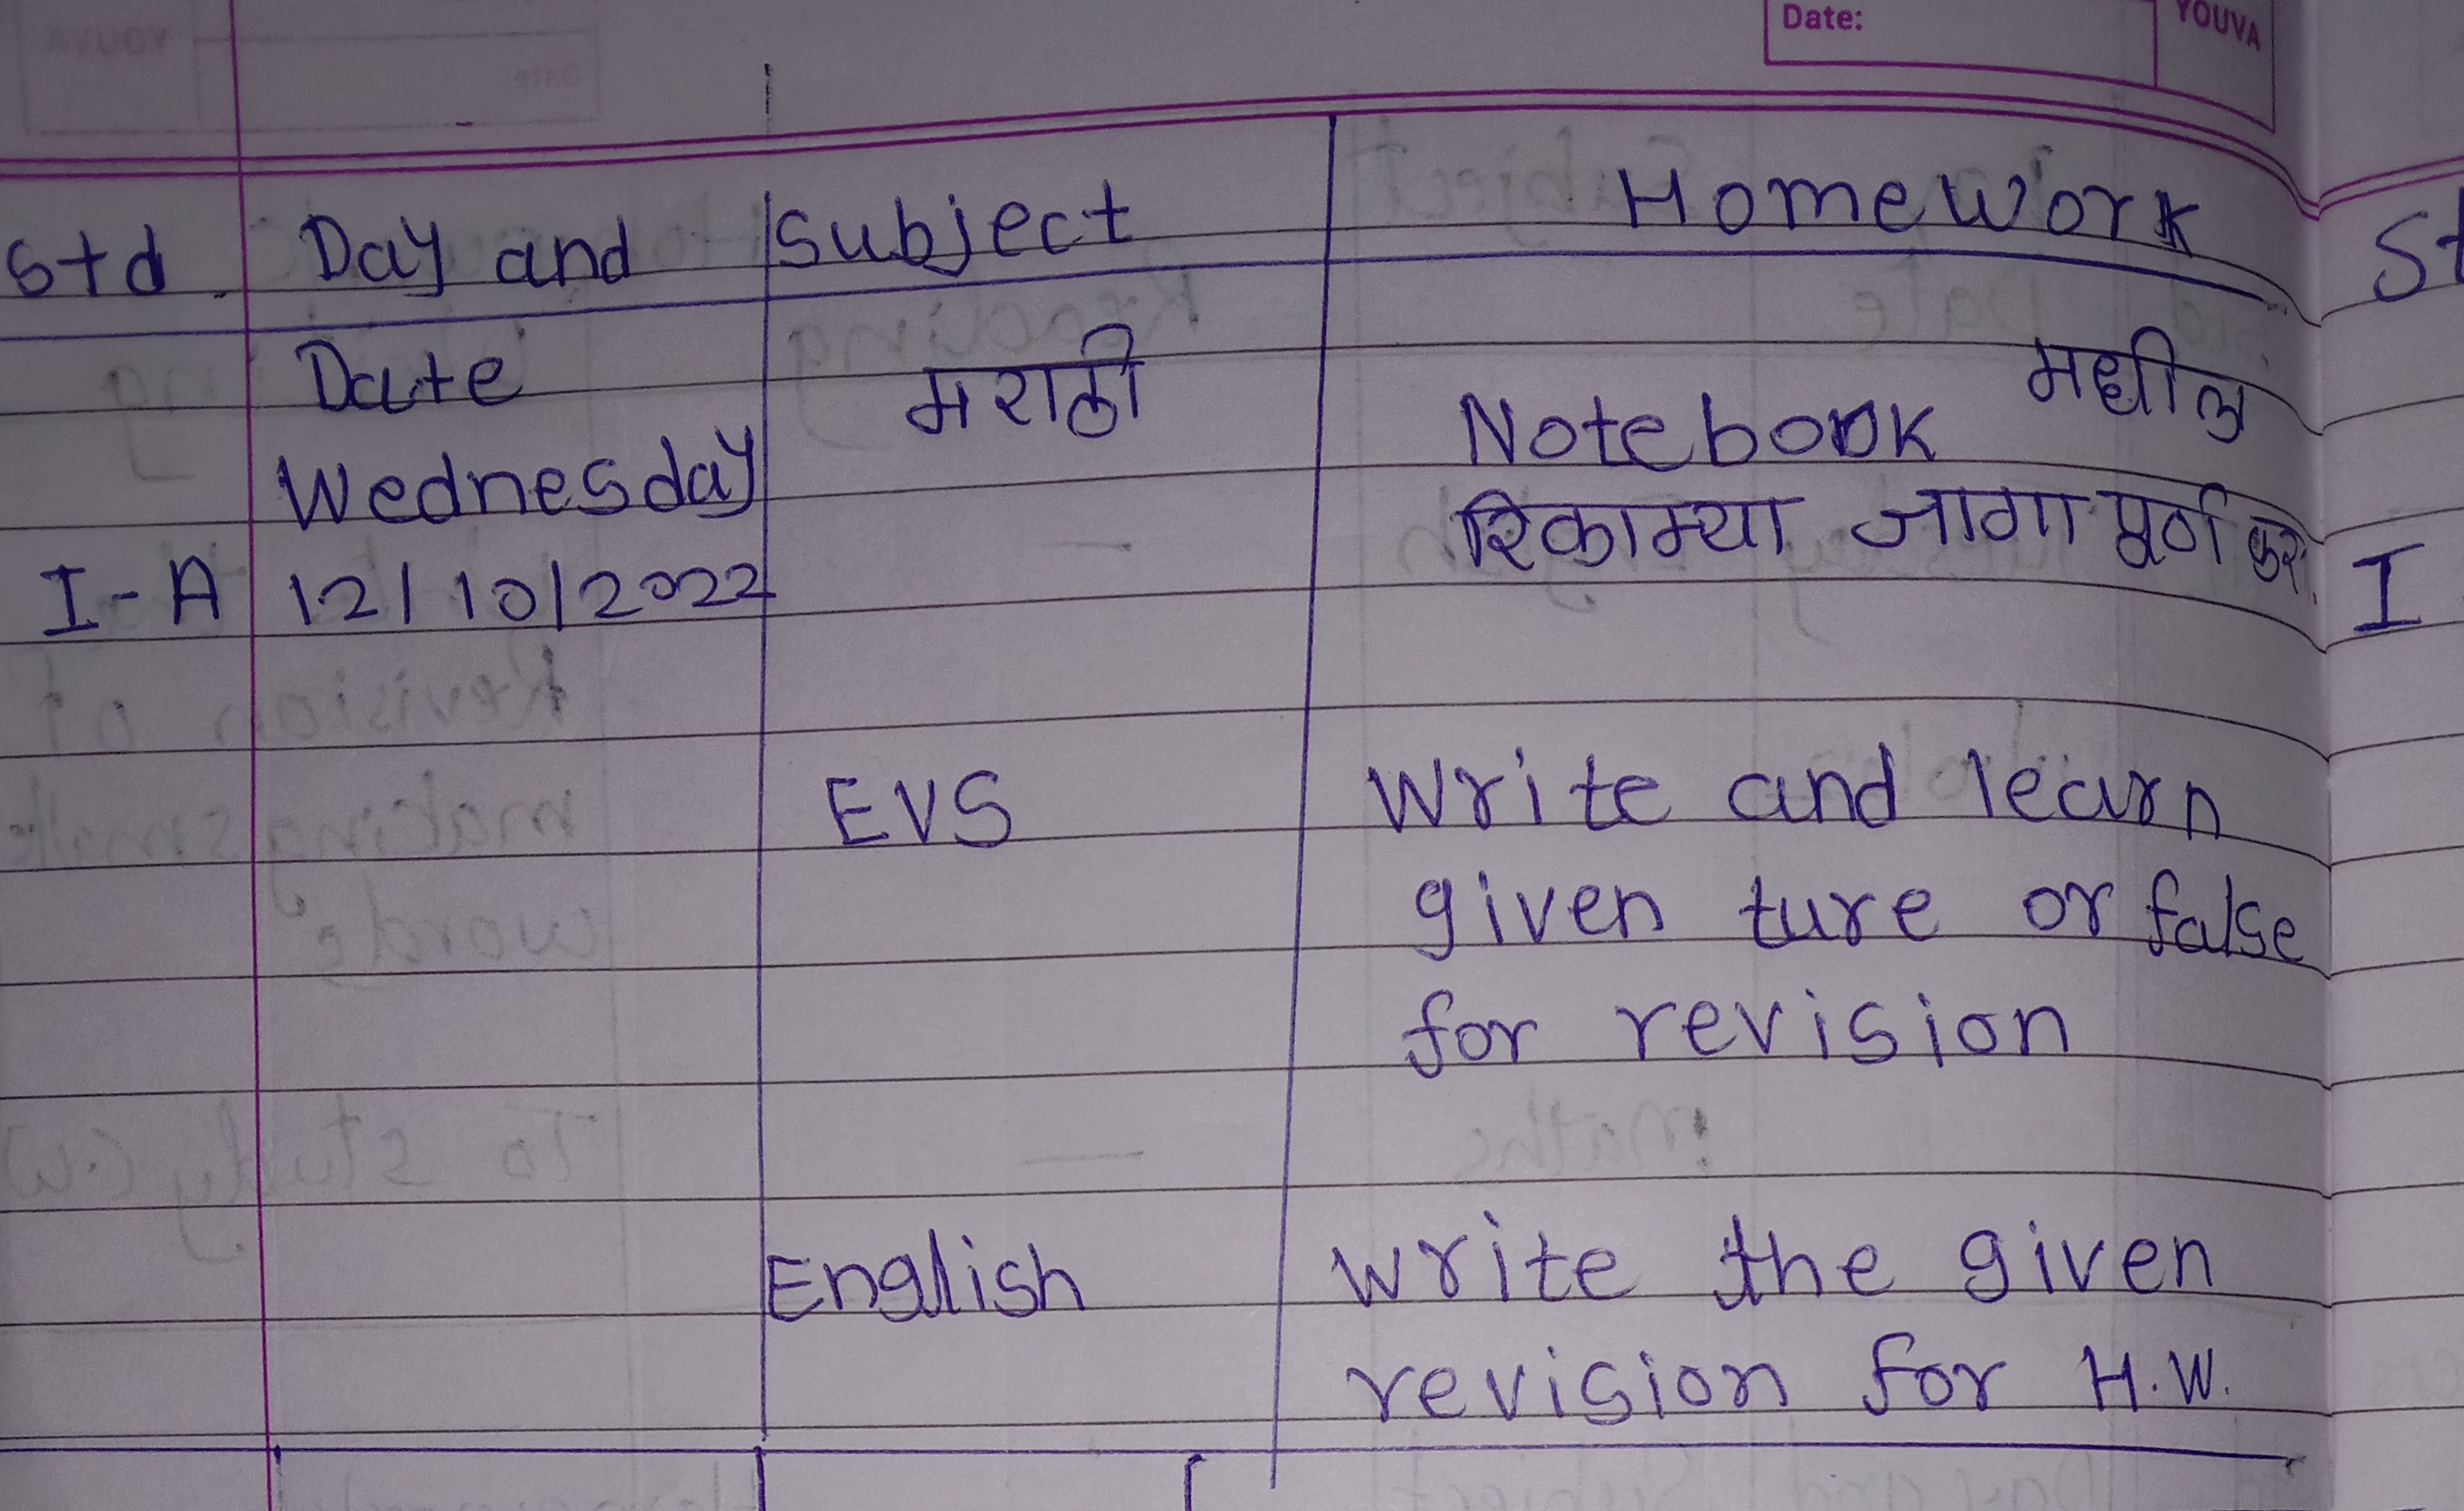 Date:
YOUVA
Std. Day and Subject HomeWork
Date मराठी Notebook मधील
Wednesday रिकाम्या जागा पूर्ण कर.
I-A 12/10/2022
EVS Write and learn
given ture or false
for revision
English Write the given
revision for H.W.
St
I